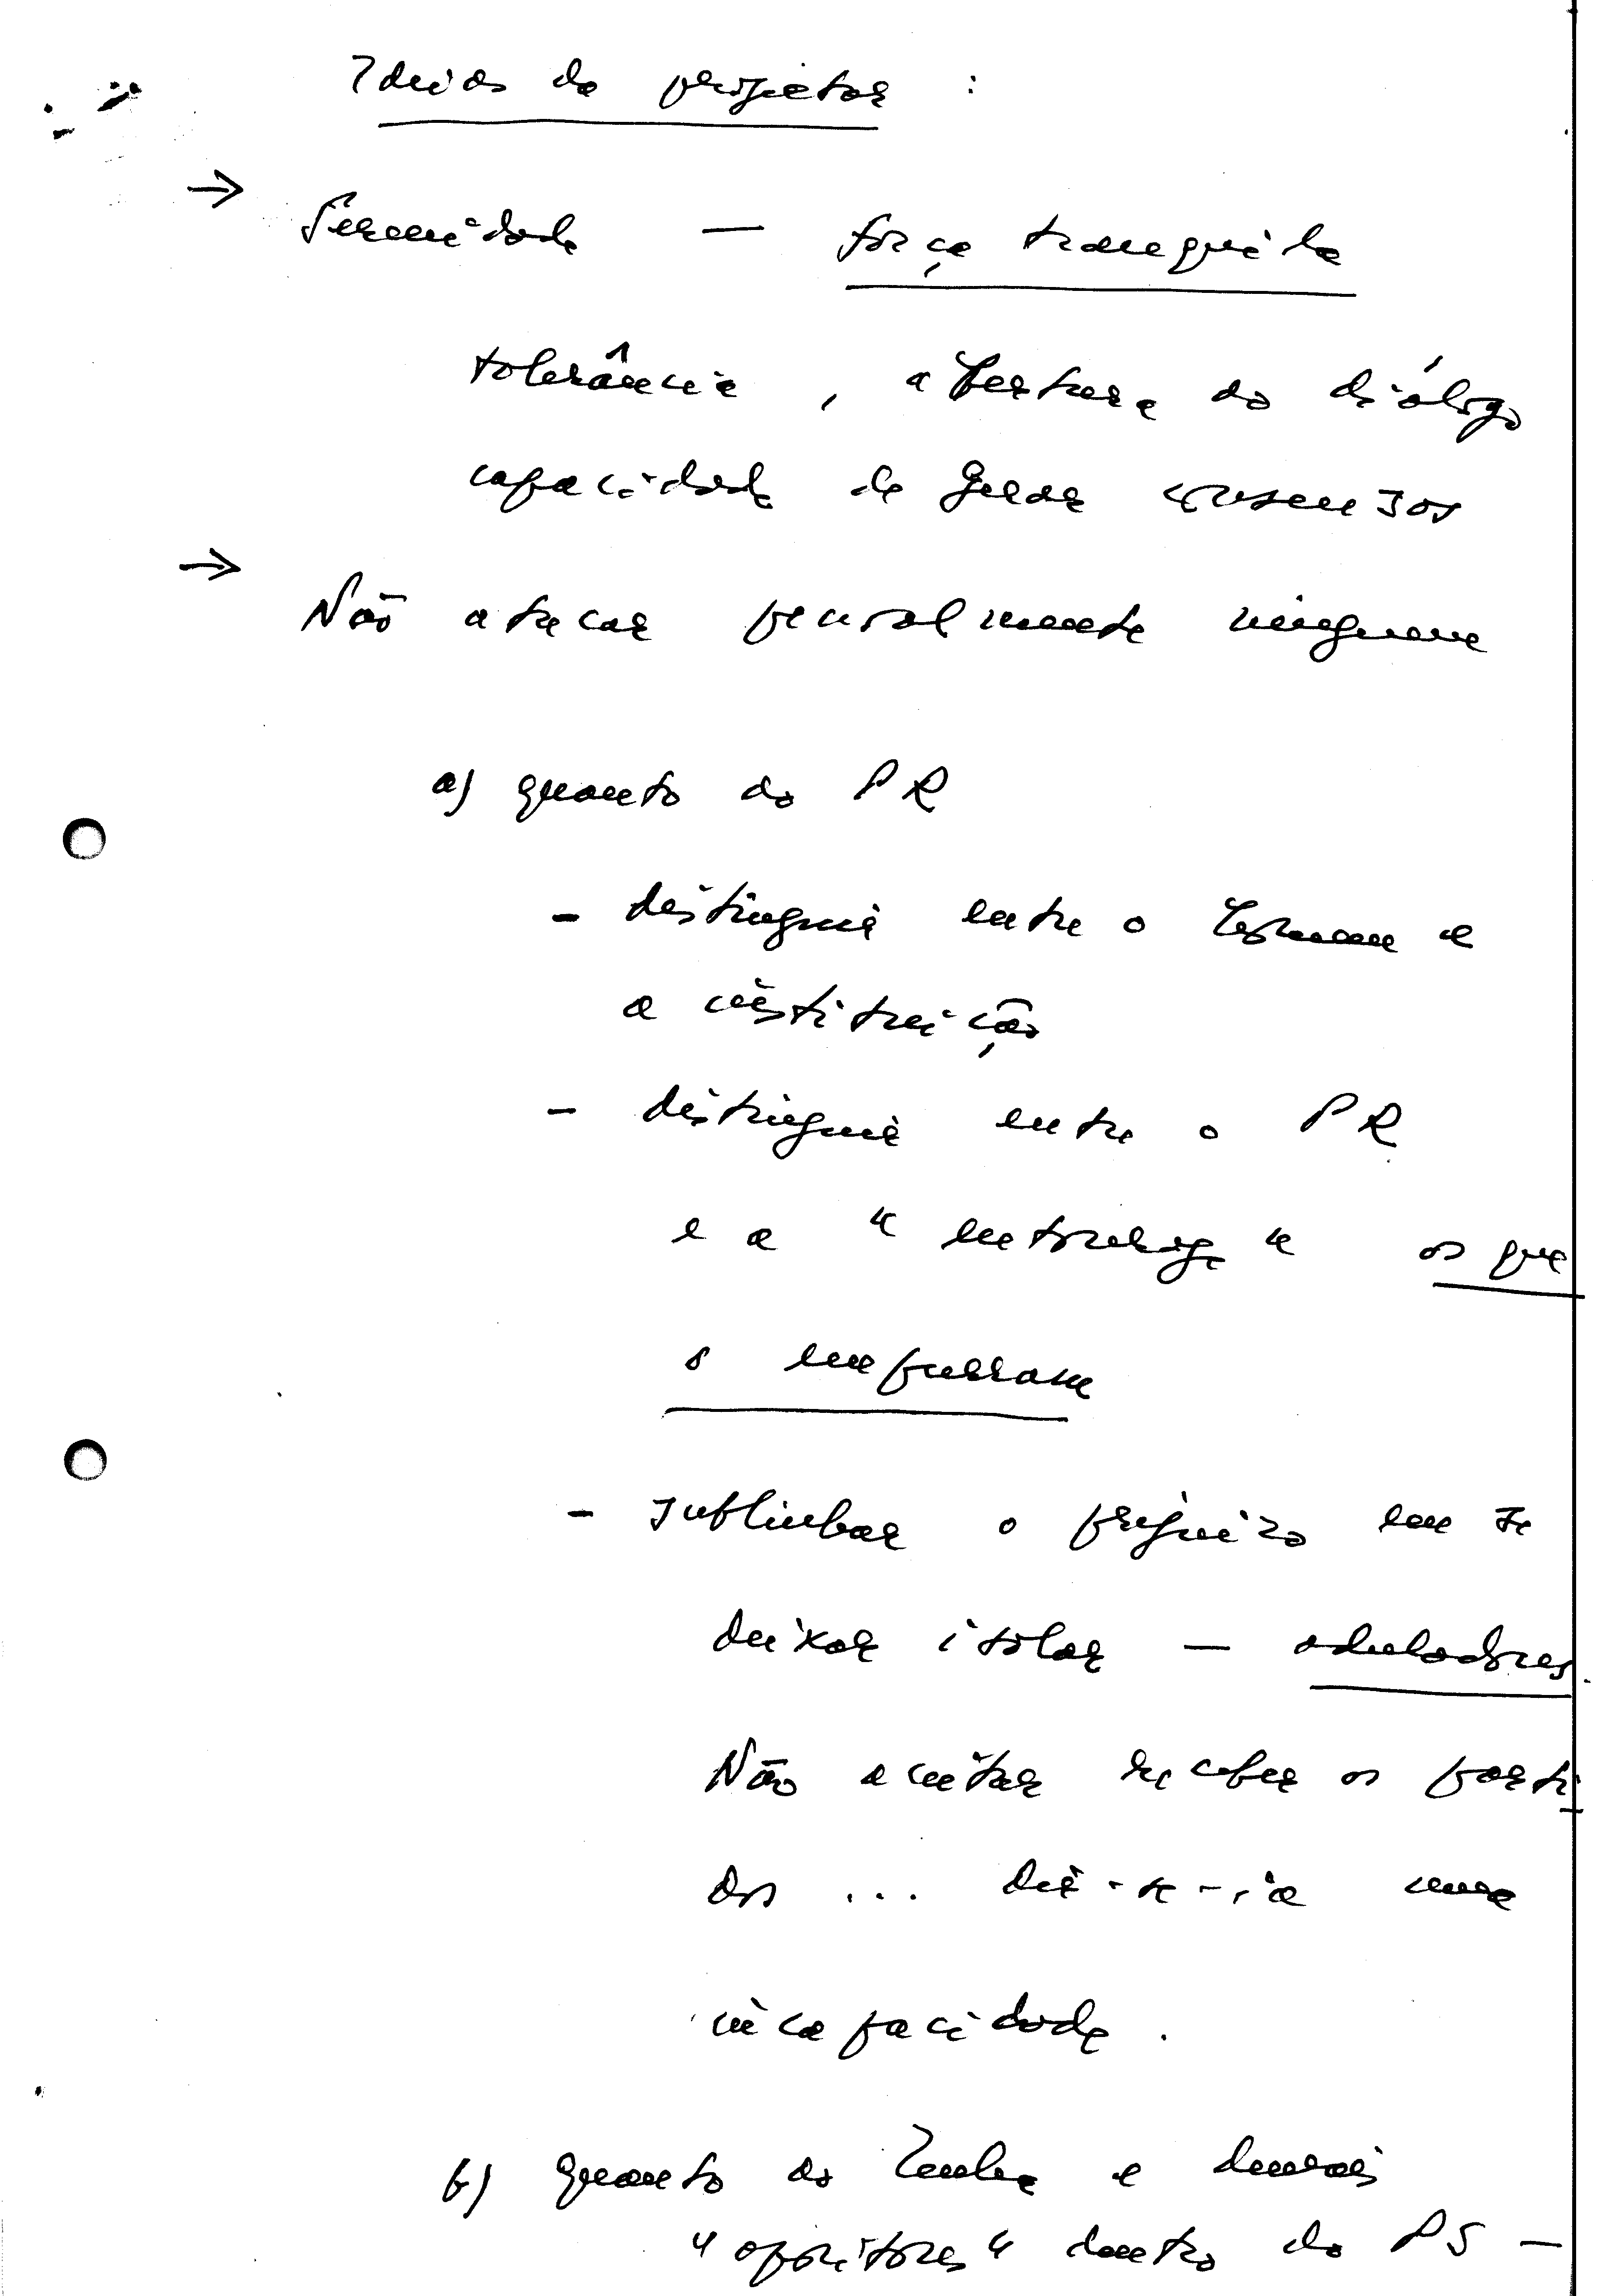 Ideias a projetar :
→ Serenidade — força tranquila
tolerância , abertura ao diálogo
capacidade de gerar consensos
→ Não atacar pessoalmente ninguem
a) quanto ao PR
- distinguir entre o homem e
a instituição
- distinguir entre o PR
e a " entourage " os que
o empurram
- sublinhar o prejuizo em se
deixar isolar — aduladores.
Não aceitar receber os parti
dos ... dir-se-ia uma
incapacidade .
b) quanto ao Zenha e demais
" opositores " dentro do PS —